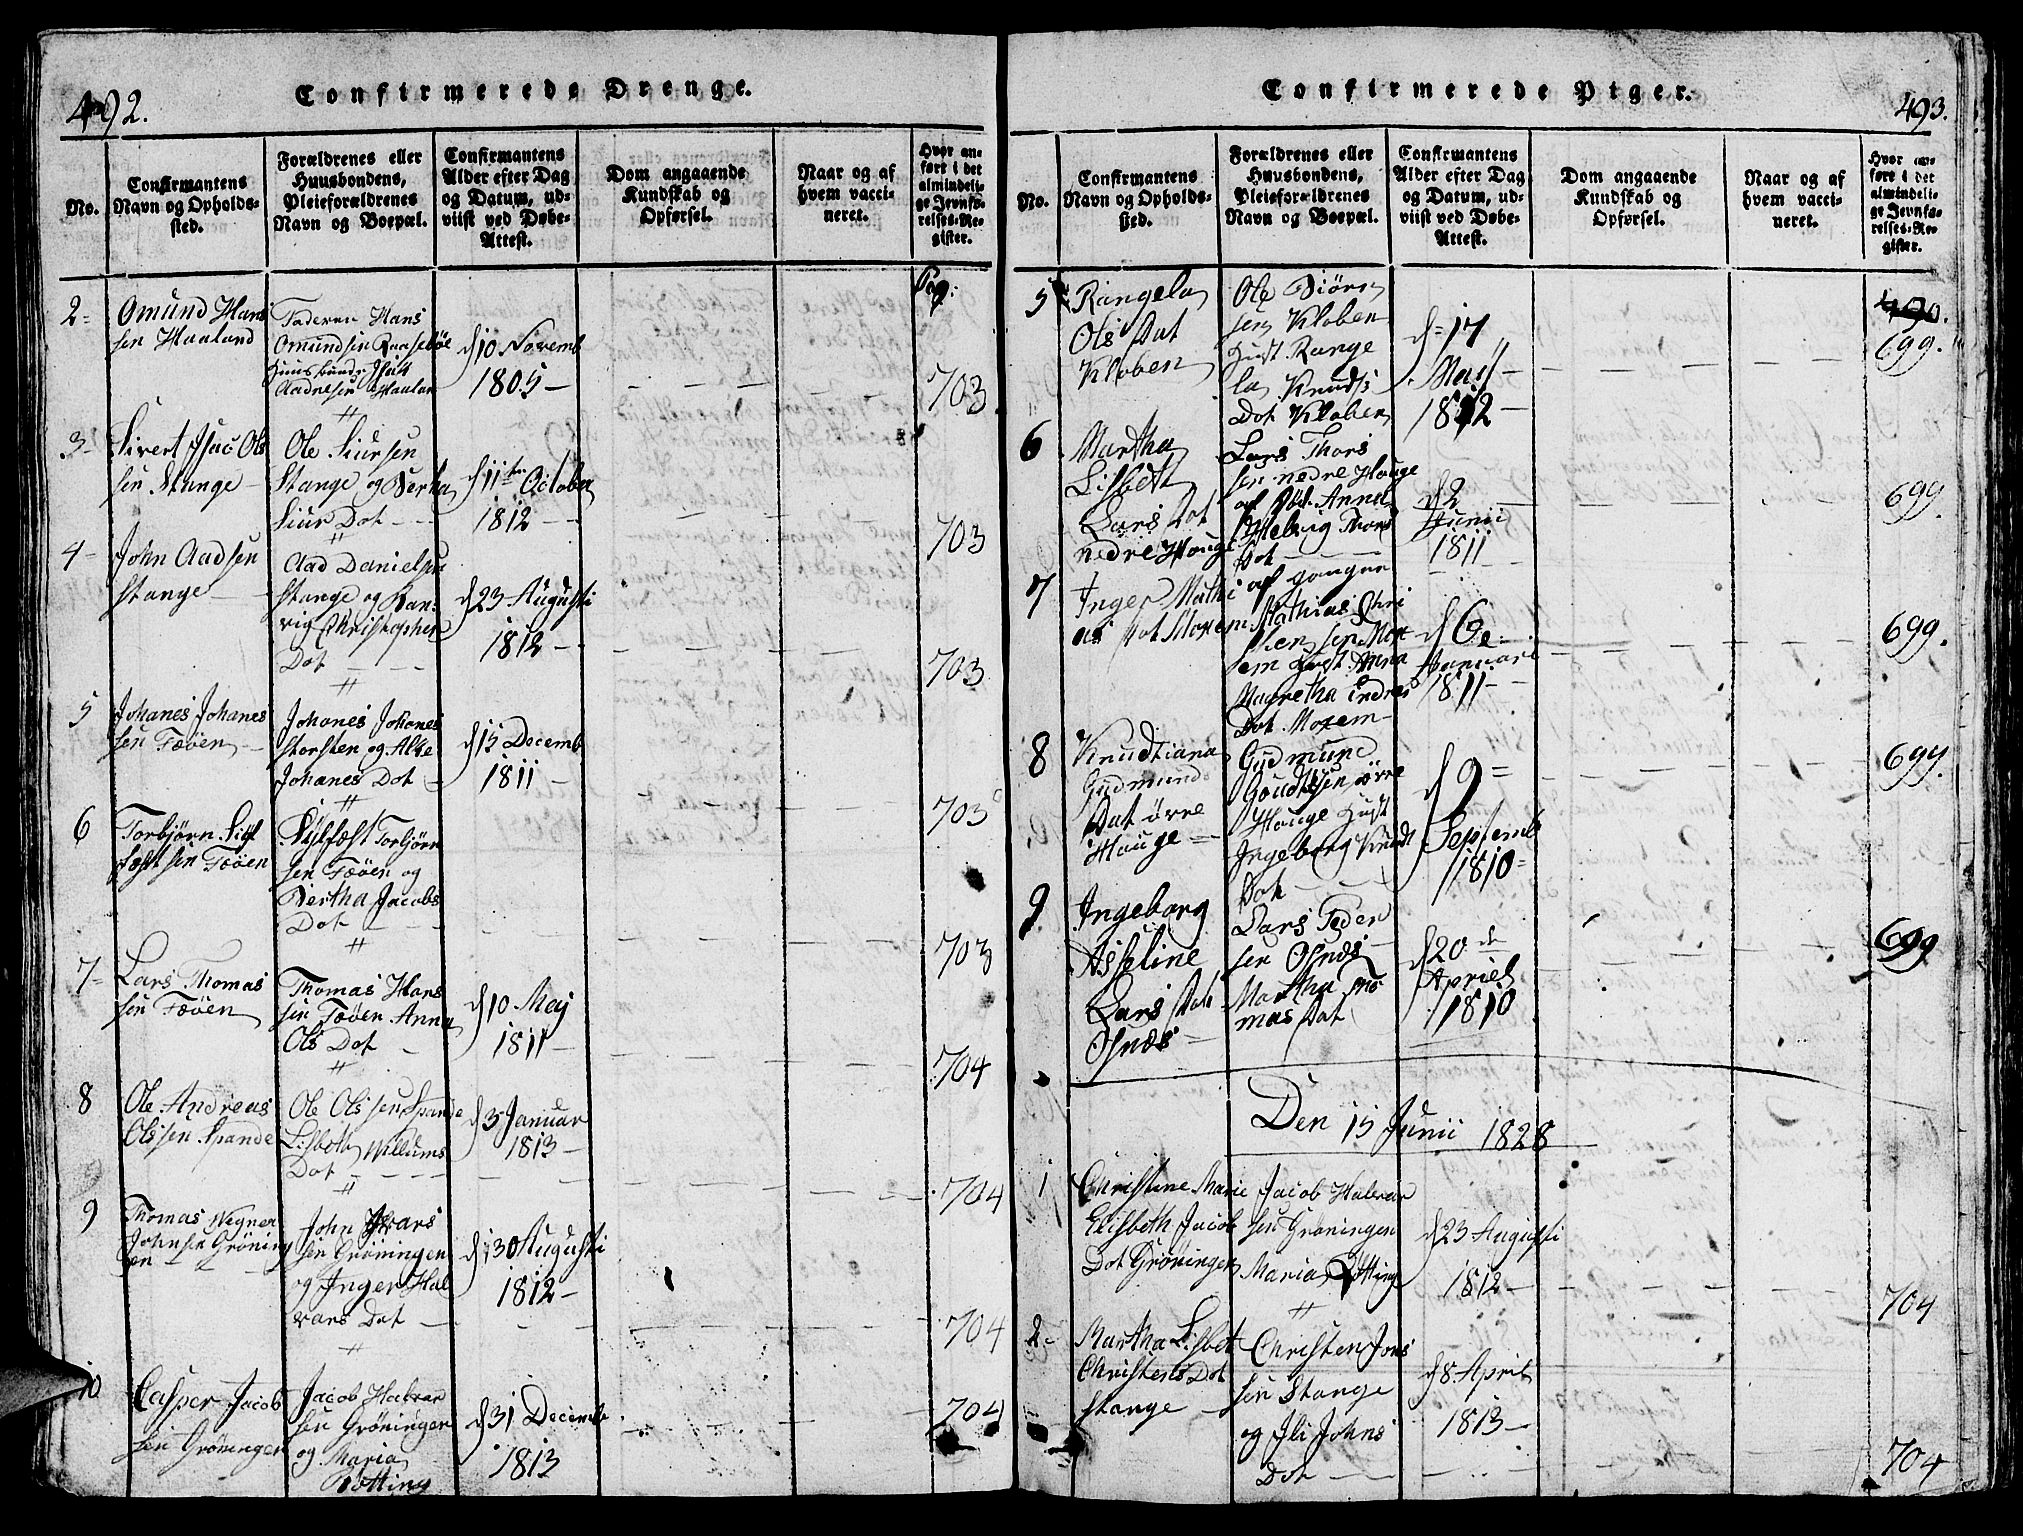 492.
Confirmerede Drenge.
No.
Confirmantens
Navn og Opholds-
sted.
Forældrenes eller
Huusbondens,
Pleieforældrenes
Navn og Boepæl.
Confirmantens
Alder efter Dag
og Datum, ud-
viist ved Døbe-
Attest.
Dom angaaende
Kundskab og
Opførsel.
Naar og af
hvem vacci-
neret.
Hvor an-
ført i det
almindeli-
ge Jevnfø-
relses-Re-
gister.
Pag:
2
Omund Hans
sen Haaland
Faderen Hans
Omundsen
Huusbunde Isak
Aadnesen Haaland
d 10 Novemb
1805
703
3
Sivert Isac Ols
sen Stange
Ole Siursen
Stange og Bertha
Siur Dot
d 11te October
1812
703
4
John Aadsen
Stange
Aad Danielsen
Stange og Ran-
vig Christopher
Dot
d 23 Augusti
1812
703
5
Johanes Johanes
sen Fæøen
Johanes Johanes
Storsten og
Johanes Dot
d 15 Decemb
1811
703
6
Torbjørn Sylf
fæst sen Fæøen
Sylfæst Torbjørn
sen Fæøen og
Bertha Jacobs
Dot
703
7
Lars Thomas
sen Fæøen
Thomas Hans
sen Fæøen Anna
Ols Dot
d 10 Maj
1811
704
8
Ole Andreas
Olssen Spande
Ole Olssen Spande
Lisbeth Willums
Dot
d 5 Januar
1813
704
9
Thomas Wegner
Johnsen Grøning
en
John Ivars
sen Grøningen
og Inger Hal
vars Dot
d 30 Augusti
1812
704
10
Casper Jacob
sen Grøningen
Jacob Halvar
sen Grøningen
og Maria
Røtting
d 31 Decemb
1813
704
Confirmerede Piger.
493.
No.
Confirmantens
Navn og Opholds-
sted.
Forældrenes eller
Huusbondens,
Pleieforældrenes
Navn og Boepæl.
Confirmantens
Alder efter Dag
og Datum, ud-
viist ved Døbe-
Attest.
Dom angaaende
Kundskab og
Opførsel.
Naar og af
hvem vacci-
neret.
Hvor an-
føre i det
almindeli-
ge Jevnfø-
relses-Re-
gister.
5
Rangela
Ols Dat
Kloben
Ole Biørn
sen Kloben
Hust Range
la Knuds
Dot Kloben
d 17
Maii
1812
490.
699.
6
Martha
Lisbeth
Lars Dot
nedre Houge
Lars Thors
sen nedre Houge
af Død. Anna
Helvig Thors
Dot
d 2
Junii
1811
699.
7
Inger Mathi
as Dot Moxem
Mathias Chri
stensen Mox
em Hust Anna
Magretha Endres
Dot Moxem
d 6
Januari
1811
699.
8
Knudtiana
Gudmund
Dat øvre
Houge
Gudmund
Goudtsen øvre
Houge Hust
Ingeborg Knudt
Dot
d 9
Septemb
1810
699
9
Ingeborg
Asseline
Lars Dot
Osnæs
Lars Peder
sen Osnæs
Martha Tho
mas Dat
d 20 de
Apriel
1810
699
Den 15 Junii 1828
1
Christine Marie
Elisbeth Jacob
Dot Grøningen
Jacob Halvar
sen Grøningen
Maria Røtting
d 23 Augusti
1812
704
2
Martha Lisbet
Christens Dot
Stange
Christen Jons
sen Stange
og Ili Johns
Dot
d 8 April
1813
704